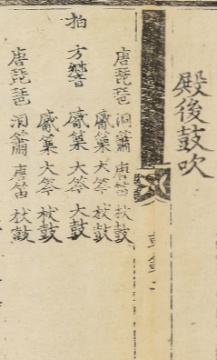 殿後鼓吹
唐琵琶 洞簫 唐笛 杖鼓
觱篥 大笒 杖鼓
拍 方響 觱篥 大笒 大鼓
觱篥 大笒 杖鼓
唐琵琶 洞簫 唐笛 杖鼓